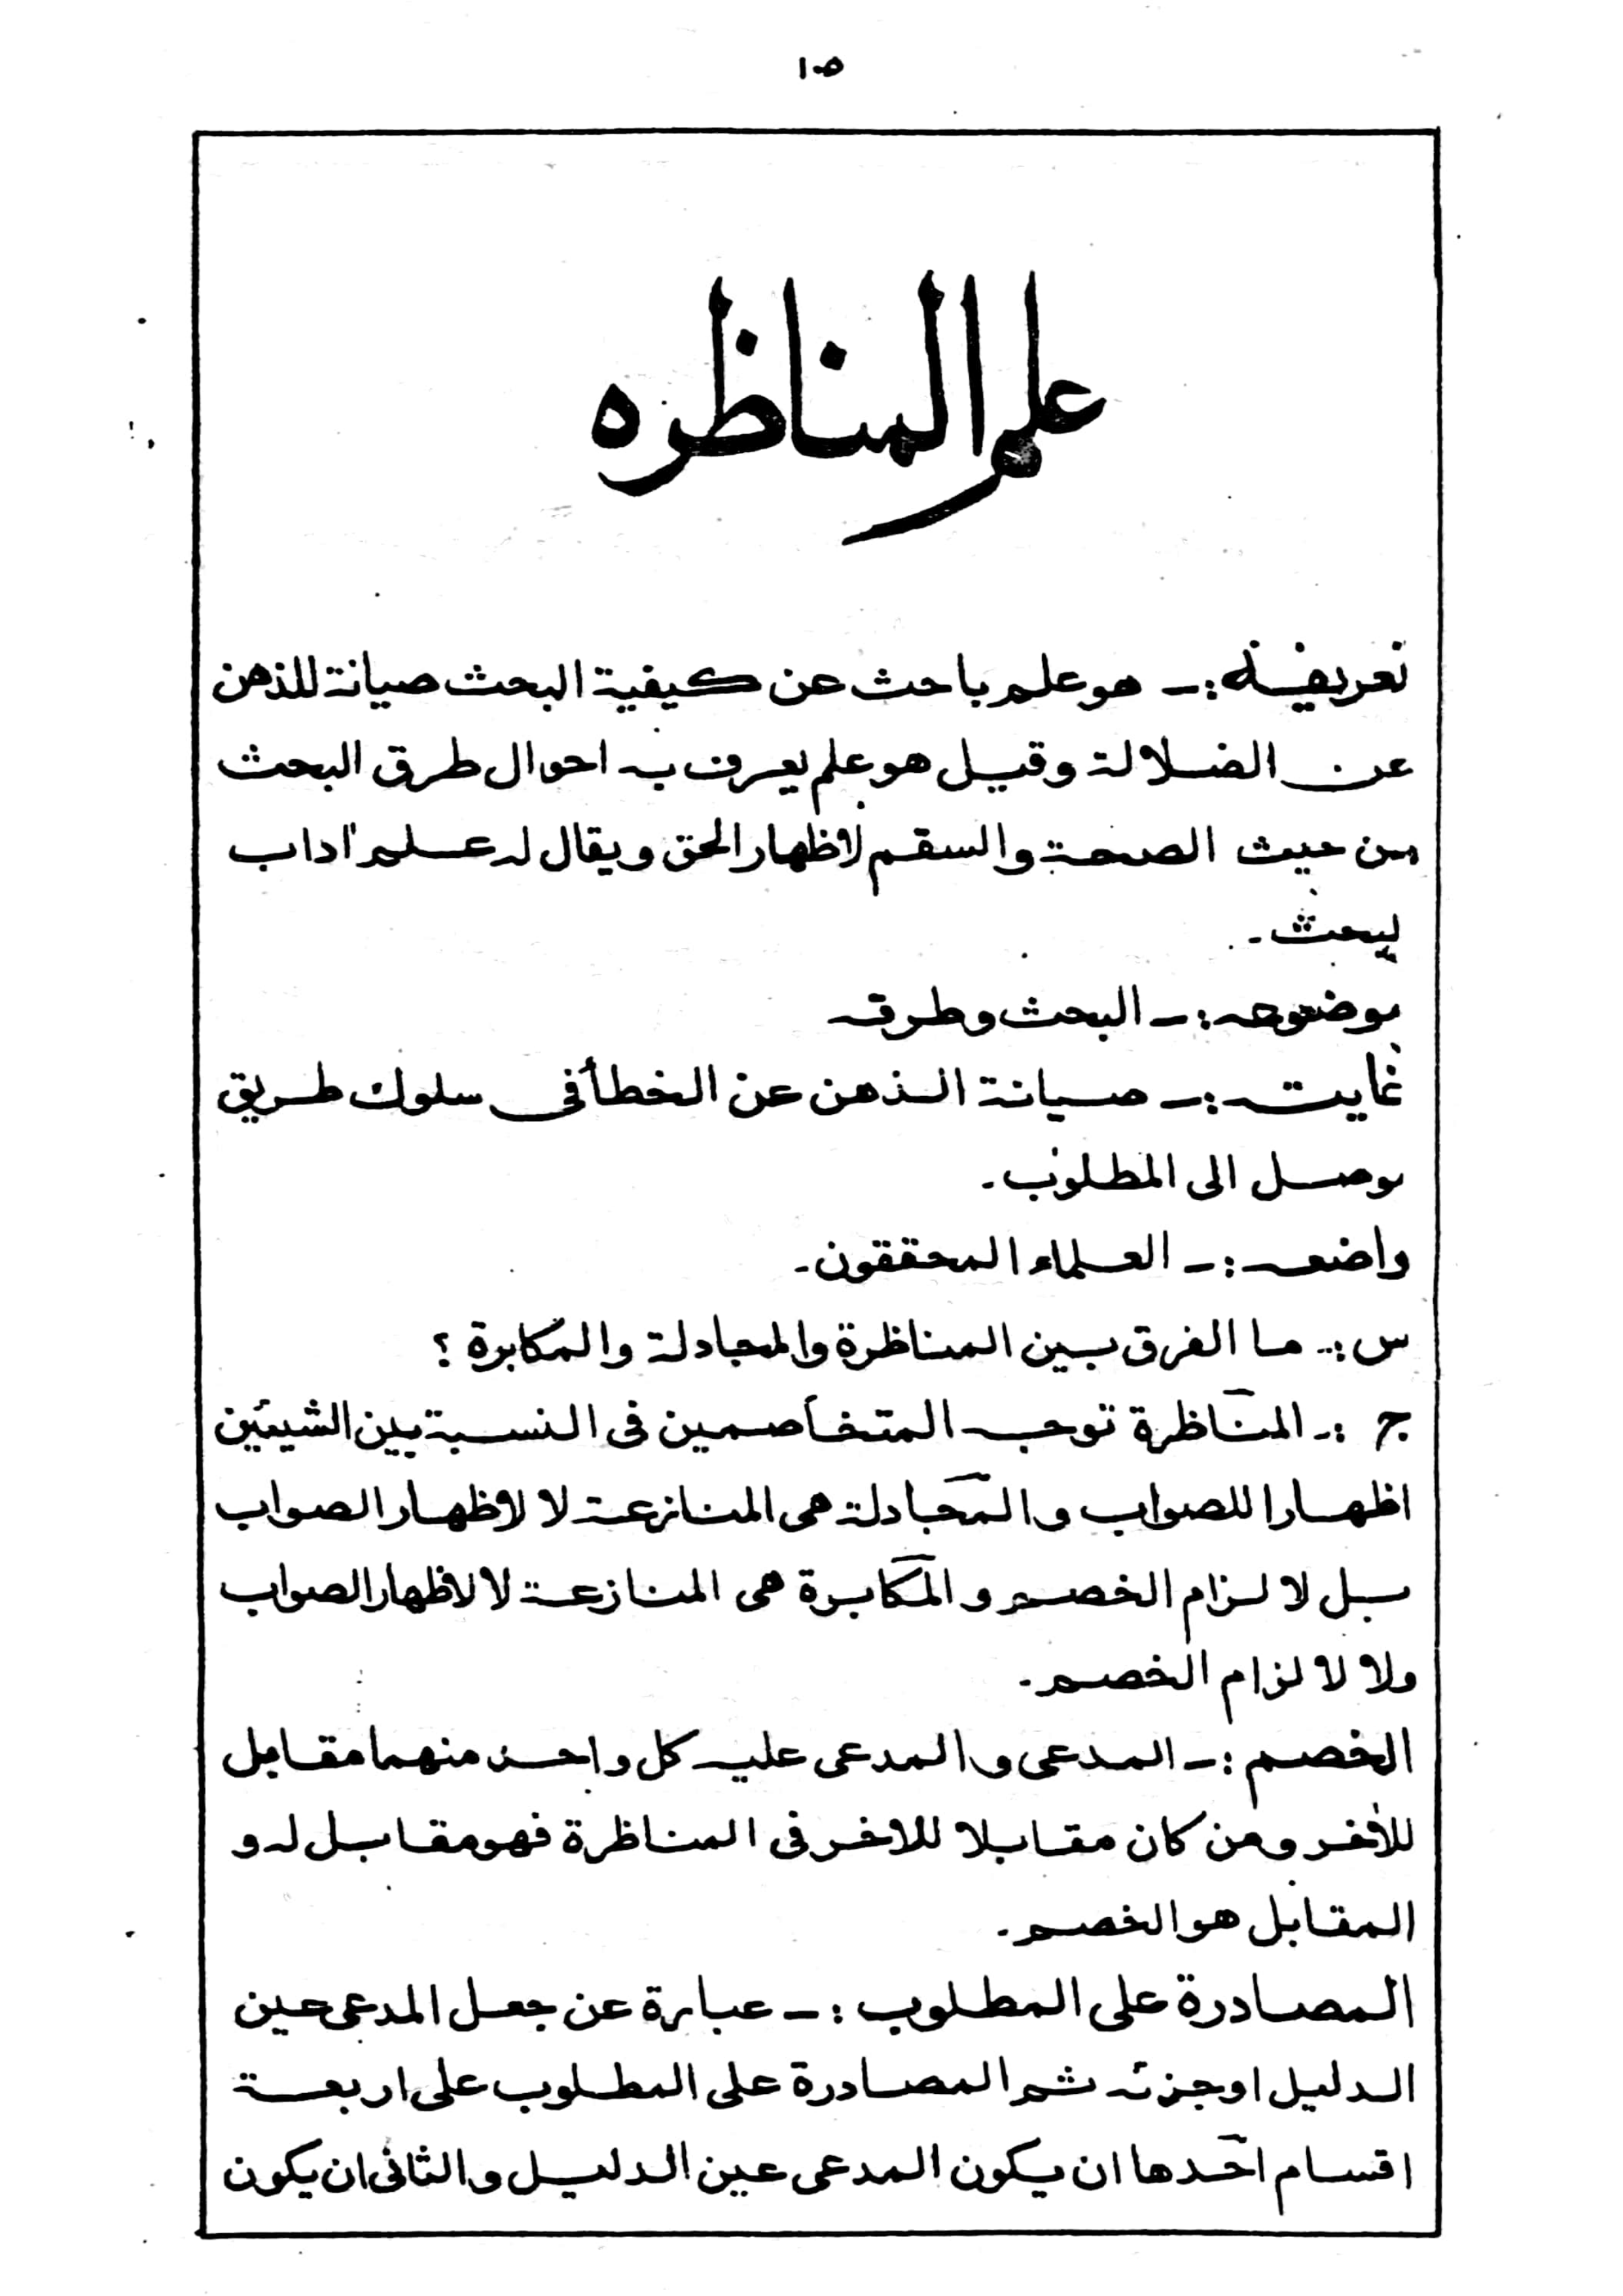 ١٠٥
علم المناظره
تعريفه :- هو علم باحث عن كيفية البحث صيانة للذهن
عن الضلالة وقيل هو علم يعرف به احوال طرق البحث
من حيث الصحة والسقم لاظهار الحق ويقال له علم اداب
لبحث -
موضوعه :- البحث وطرقه
غايته :- صيانة الذهن عن الخطأ فى سلوك طريق
يوصل الى المطلوب -
واضعه :- العلماء المحققون -
س :- ما الفرق بين المناظرة والمجادلة والمكابرة ؟
ج :- المناظرة توجه المتخاصمين فى النسبة بين الشيئين
اظهارا للصواب والمجادلة هى المنازعة لا لاظهار الصواب
بل لالزام الخصم والمكابرة هى المنازعة لا لاظهار الصواب
ولا لالزام الخصم -
الخصم :- المدعى والمدعى عليه كل واحد منهما مقابل
للأخر ومن كان مقابلا للاخر فى المناظرة فهو مقابل له و
المقابل هو الخصم -
المصادرة على المطلوب :- عبارة عن جعل المدعى عين
الدليل او جزئه ثم المصادرة على المطلوب على اربعة
اقسام احدها ان يكون المدعى عين الدليل والثانى ان يكون